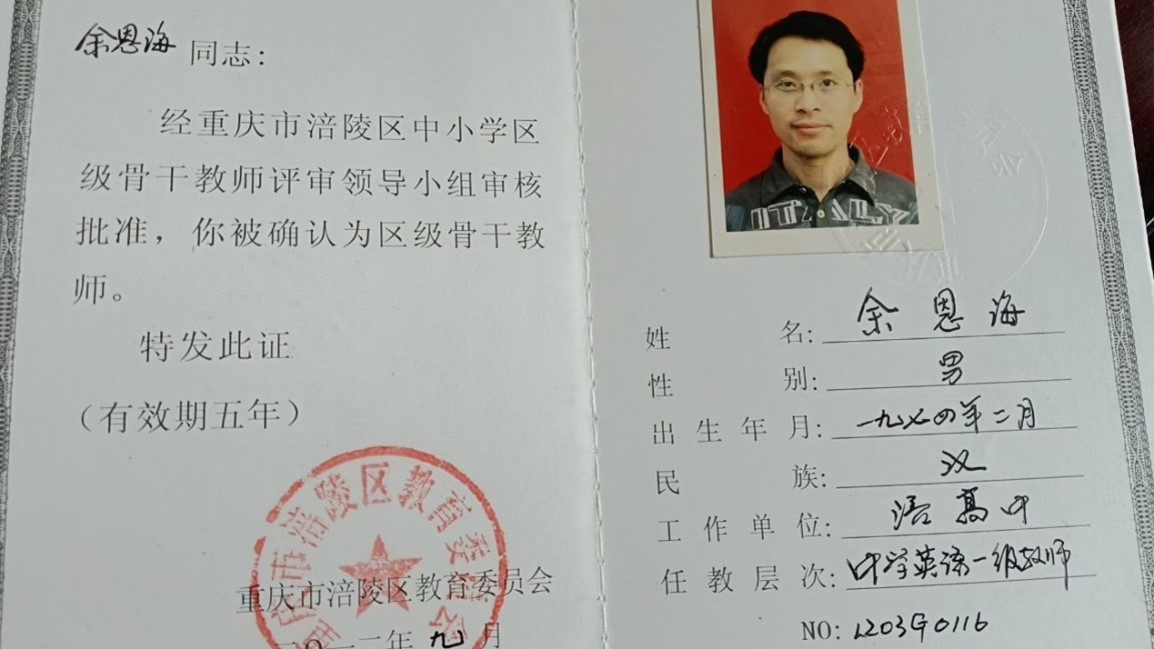 余恩海 同志：
经重庆市涪陵区中小学区
级骨干教师评审领导小组审核
批准，你被确认为区级骨干教
师。
特发此证
（有效期五年）
重庆市涪陵区教育委员会
重庆市涪陵区教育委员会
二〇一二年九月
ITALY
姓名：余恩海
性别：男
出生年月：一九七四年二月
民族：汉
工作单位：涪高中
任教层次：中学英语一级教师
NO: 1203G0116